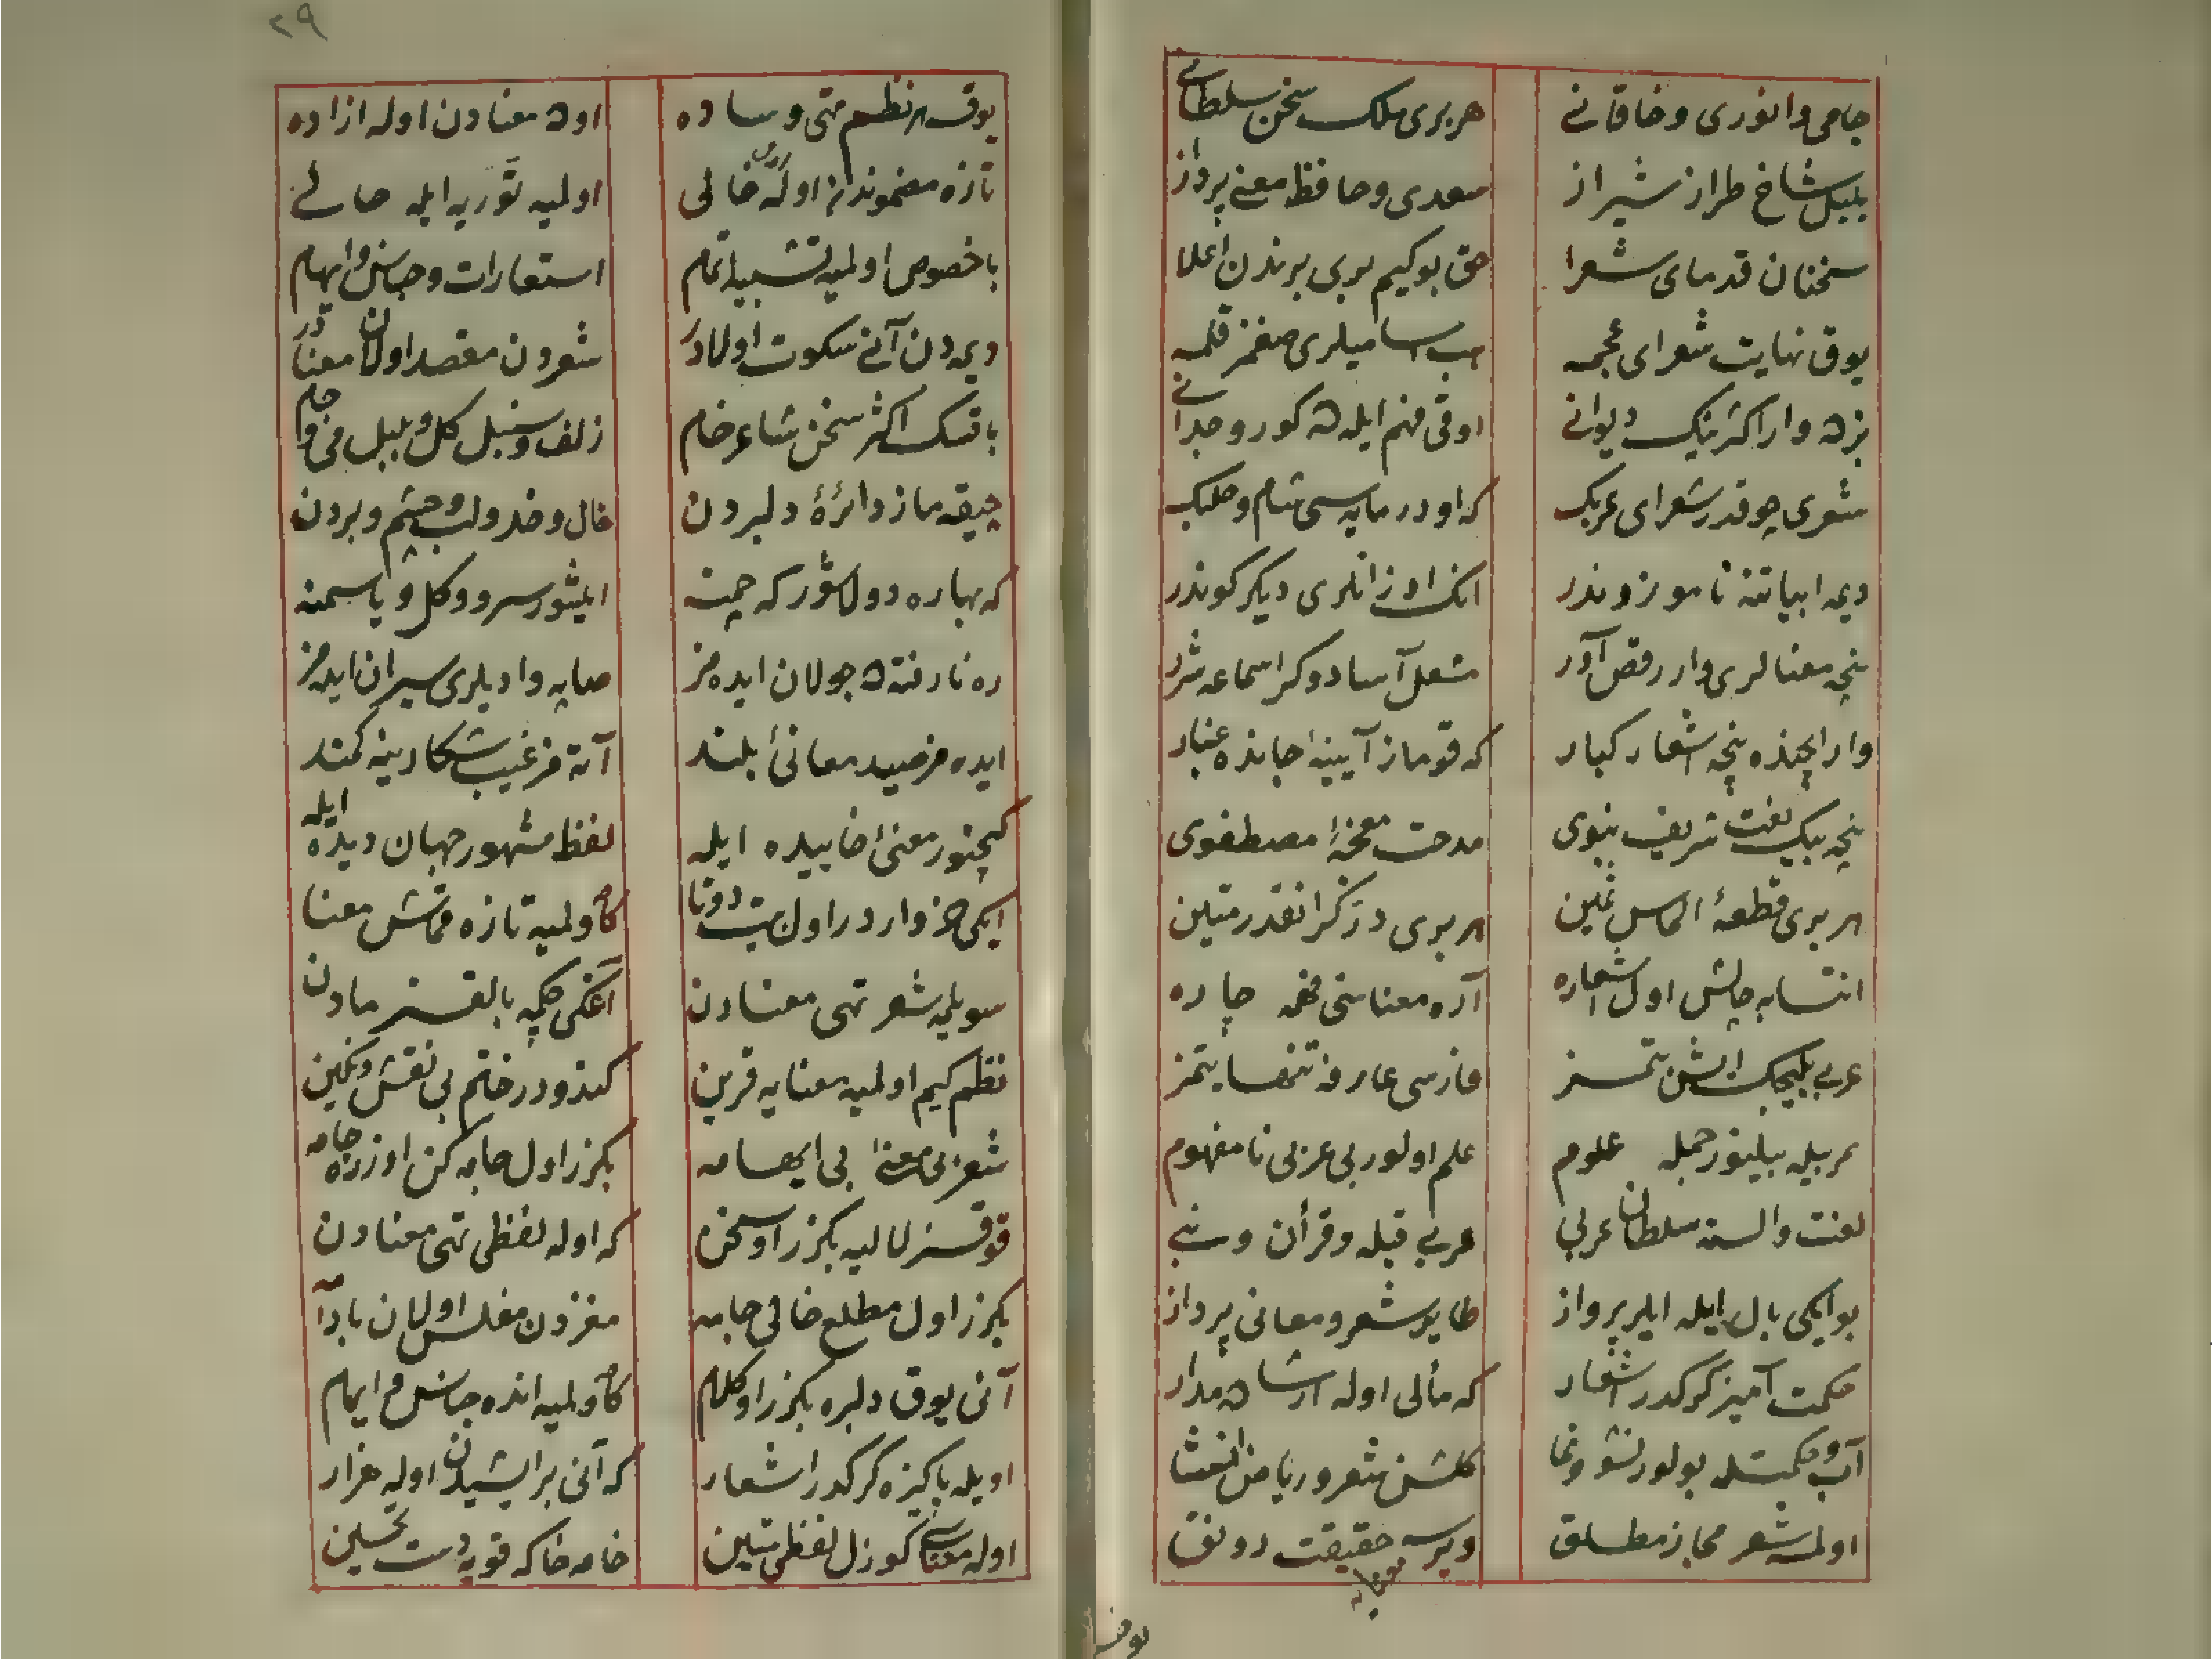 جامی و انوری و خاقانے هر بری ملک سخن سلطانے
بلبل شاخ طراز شیراز سعدی و حافظ معنے پرداز
سخنان قدمای شعرا حق بو کیم بری برندن اعلا
یوق نهایت شعرای عجمه اسامیلری صغمز قلمه
بزده وار اکثرینک دیوانے اوقی فهم ایله ده کور وجدانے
شعری چوقدر شعرای عربک که اودر مایه سی شام و حلبک
دیمه ابیاتنه نا موزوندر انک اوزانلری دیکر کوندر
نیچه معنالری وار رقص آور مشعل آسا دوکر اسماعه شرر
وار ایچنده نیچه اشعار کبار که قوماز آیینهٔ جانده غبار
نیچه بیک نعت شریف نبوی مدحت معجزهٔ مصطفوی
هر بری قطعهٔ الماس ثمین هر بری در کرانقدر متین
انتسابه چالش اول اشعاره آره معناسنی فهمه چاره
عربے بلیجک ایش بتمز فارسی عارفه تنها یتمز
عربیله بیلینور جمله علوم علم اولور بی عربی نا مفهوم
لغت و السنه سلطان عربی عربے قبله و قرآن و نبے
بو ایکی بال ایله ایلر پرواز طایر شعر و معانی پرداز
حکمت آمیز کرکدر اشعار که مألی اوله ارشاده مدار
آب حکمتله بولور نشو و نما کلشن شعر و ریاض انشا
اولمسه شعر مجاز مطلق ویرسه حقیقت رونق
یوقسه
٢٩
یوقسه هر نظم متی و ساده اوده معنادن اوله ازاده
تازه مضموندنز اوله خالی اولمیه توریه ایله حالے
با خصوص اولمیه تشبیه تمام استعارات و جناس و ایهام
دیمه دن آنے سکوت اولادر شعردن مقصد اولان معنادر
باقسک اکثر سخن شاعر خام زلف و سنبل کل و بلبل می و جام
چیقه ماز دائرهٔ دلبردن خال و خد و لب و چشم و بردن
که بهاره دولاشور که چمنه ایلیشور سرو و کل و یاسمنه
ره نا رفته ده جولان ایده مز صاپه وادیلری سیران ایده مز
ایده مز صید معانیٔ بلند آته مز غیب شکارینه کمند
کچنور معنیٔ خاییده ایله لفظ مشهور جهان دیده ایله
ایکی جز واردر اول بیت دوتا کاولمیه تازه قماش معنا
سویلمه شعر تهی معنادن آغکی چکمه بالقسز مادن
نظم کیم اولمیه معنایه قرین کندودر خاتم بی نقش و نکین
شعر بی معنیٔ بی ایهامه بکزر اول جامه کن اوزره جامه
قوقسز لالیه بکزر او سخن که اوله لفظی تهی معنادن
بکزر اول مطلع خالی جامه مغزدن مفلس اولان بادامه
آنی یوق دلبره بکزر او کلام کاولمیه انده جناس و ایهام
اویله پاکیزه کرکدر اشعار که آنی بر ایشیدن اوله هزار
اوله معناسے کوزل لفظی متین خامه خاکه قویه دست تحسین